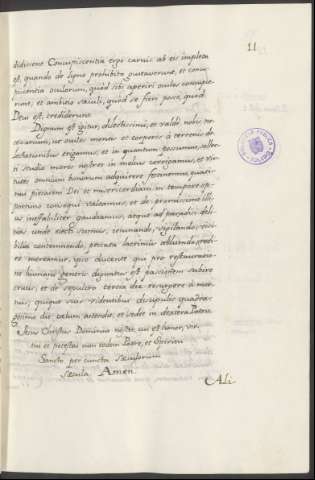 11
didicere Concupiscentia ergo carnis ab eis impleta
est, quando de ligno prohibito gustaverunt, et concu-
piscentia oculorum, quod sibi aperiri oculos concupie-
runt, et ambitio sæculi, quod se fieri posse, quod
Deus est, crediderunt.
Dignum est igitur, dilectissimi, et valdè nobis ne-
cessarium, ut oculos mentis et corporis à terrenis de-
lectationibus erigamus, et in quantum possumus, solerti
studio mores nostros in melius corrigamus, et vir-
tutes omnium bonarum adquirere festinemus, quate-
nus pietatem Dei et misericordiam in tempore op-
portuno consequi valeamus, et de promissione illi-
us ineffabiliter gaudeamus, atque ad paradisi deli-
tias unde ejecti sumus, jejunando, vigilando, visi-
bilia contemnendo, peccata lacrimis abluendo, redi-
re mereamur, ipso ducente qui pro restauratio-
ne humani generis dignatus est passionem subire
crucis, et de sepulcro tercia die resurgere à mor-
tuis, quique suis videntibus discipulis quadra-
gesima die cælum ascendit, et sedet in dextera Patris
Jesus Christus Dominus noster, cui est honor, vir-
tus et potestas cum eodem Patre, et Spiritu
Sancto per cuncta sæculorum
sæcula Amen.